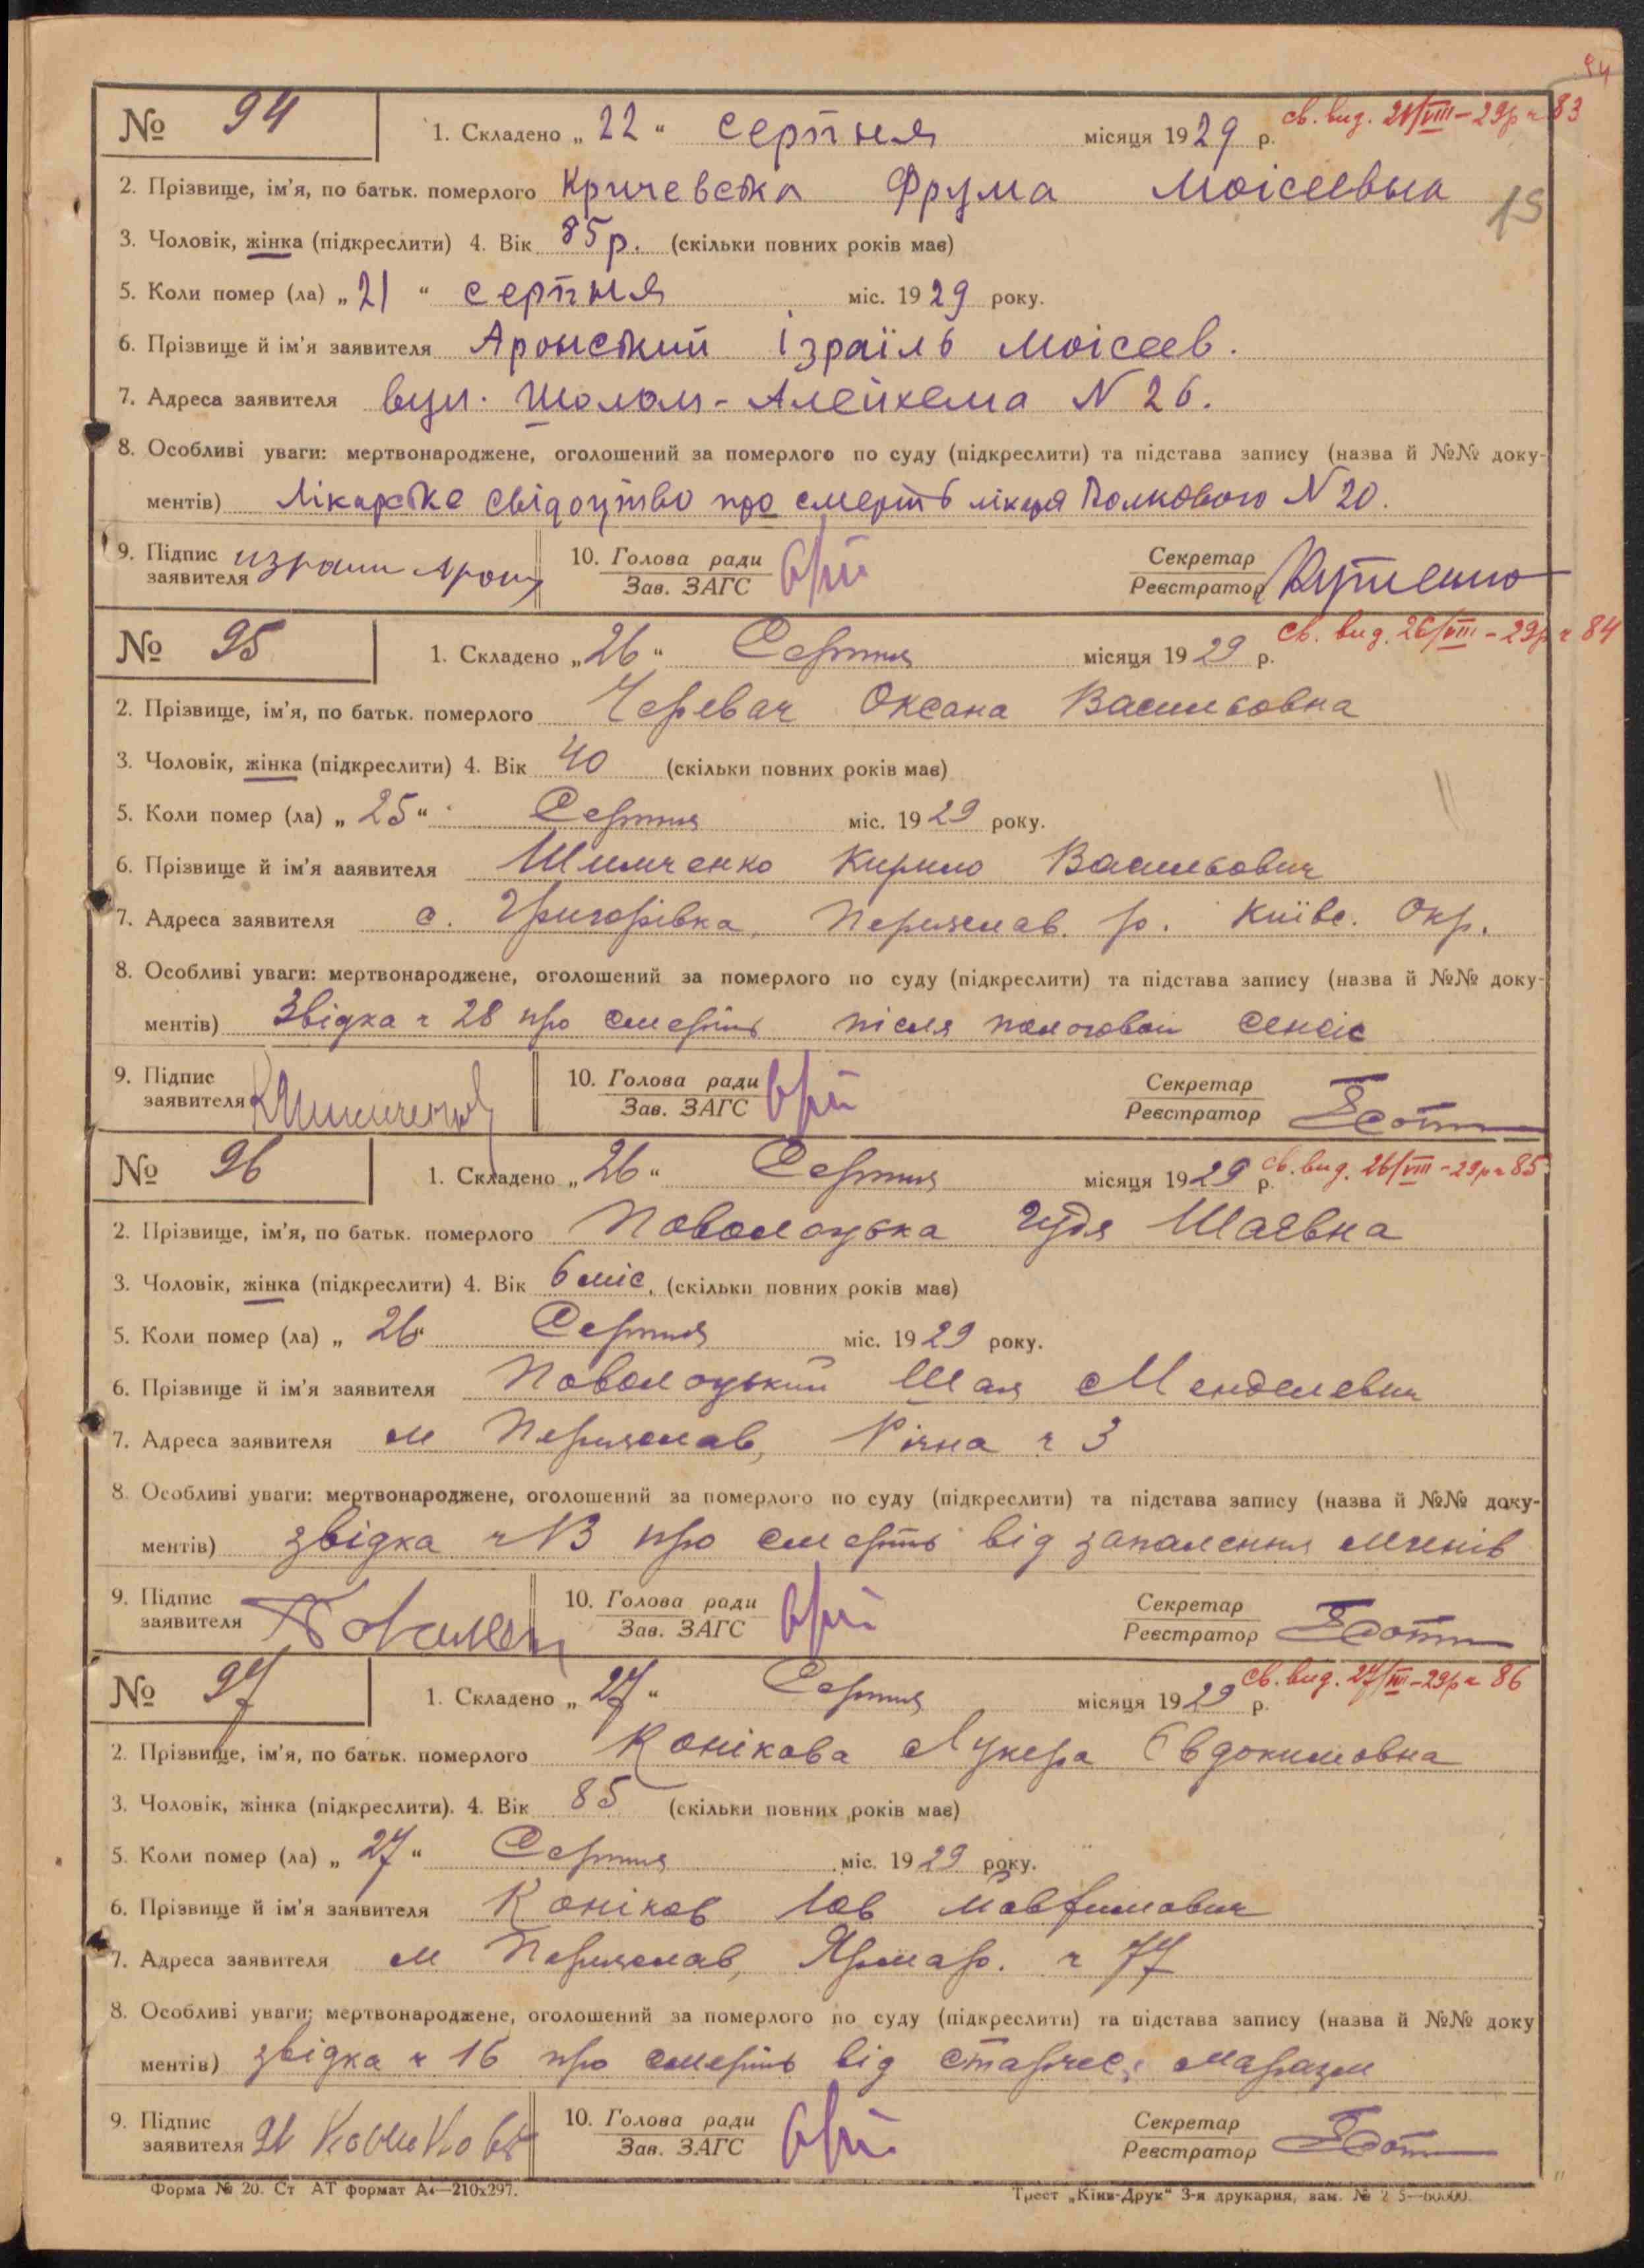 94
№ 94 1. Складено „ 22 “ серпня місяця 1929 р. св. вид. 21/VIII–29р ч 83
2. Прізвище, ім’я, по батьк. померлого Кричевська Фрума Моісеевна 15
3. Чоловік, жінка (підкреслити) 4. Вік 85 р. (скільки повних років має)
5. Коли помер (ла) „ 21 “ серпня міс. 1929 року.
6. Прізвище й ім’я заявителя Аронський Ізраїль Моісеев.
7. Адреса заявителя вул. Шолом-Алейхема N 26.
8. Особливі уваги: мертвонароджене, оголошений за померлого по суду (підкреслити) та підстава запису (назва й №№ доку-
ментів) Лікарське свідоцтво про смерть лікаря Полкового N 20.
9. Підпис заявителя 10. Голова ради Секретар
Зав. ЗАГС Реєстратор
№ 95 1. Складено „ 26 “ Серпня місяця 1929 р. св. вид. 26/VIII–29р ч 84
2. Прізвище, ім’я, по батьк. померлого Черевач Оксана Васильовна
3. Чоловік, жінка (підкреслити) 4. Вік 40 (скільки повних років має)
5. Коли помер (ла) „ 25 “ Серпня міс. 1929 року.
6. Прізвище й ім’я заявителя Шимченко Кирило Васильович
7. Адреса заявителя с. Григорівка, Переяслав. р. Київс. Окр.
8. Особливі уваги: мертвонароджене, оголошений за померлого по суду (підкреслити) та підстава запису (назва й №№ доку-
ментів) Звідка ч 28 про смерть після пологовой сепсіс
9. Підпис заявителя 10. Голова ради Секретар
Зав. ЗАГС Реєстратор
№ 96 1. Складено „ 26 “ Серпня місяця 1929 р. св. вид. 26/VIII–29р ч 85
2. Прізвище, ім’я, по батьк. померлого Поволоцька Гудя Шаєвна
3. Чоловік, жінка (підкреслити) 4. Вік 6 міс. (скільки повних років має)
5. Коли помер (ла) „ 26 Серпня міс. 1929 року.
6. Прізвище й ім’я заявителя Поволоцький Шая Менделевич
7. Адреса заявителя м Переяслав, Річна ч 3
8. Особливі уваги: мертвонароджене, оголошений за померлого по суду (підкреслити) та підстава запису (назва й №№ доку-
ментів) звідка ч 13 про смерть від запалення
9. Підпис заявителя 10. Голова ради Секретар
Зав. ЗАГС Реєстратор
№ 97 1. Складено „ 27 “ Серпня місяця 1929 р. св. вид. 27/VIII–29р ч 86
2. Прізвище, ім’я, по батьк. померлого Конікова Лукера Євдокимовна
3. Чоловік, жінка (підкреслити). 4. Вік 85 (скільки повних років має)
5. Коли помер (ла) „ 27 “ Серпня міс. 1929 року.
6. Прізвище й ім’я заявителя Коніков Іов
7. Адреса заявителя м Переяслав, Ярмар. ч 77
8. Особливі уваги: мертвонароджене, оголошений за померлого по суду (підкреслити) та підстава запису (назва й №№ доку
ментів) звідка ч 16 про смерть від старчес. маразм
9. Підпис заявителя 10. Голова ради Секретар
Зав. ЗАГС Реєстратор
Форма № 20. Ст АТ формат А4—210х297. Трест „Київ-Друк“ 3-я друкарня, зам. №